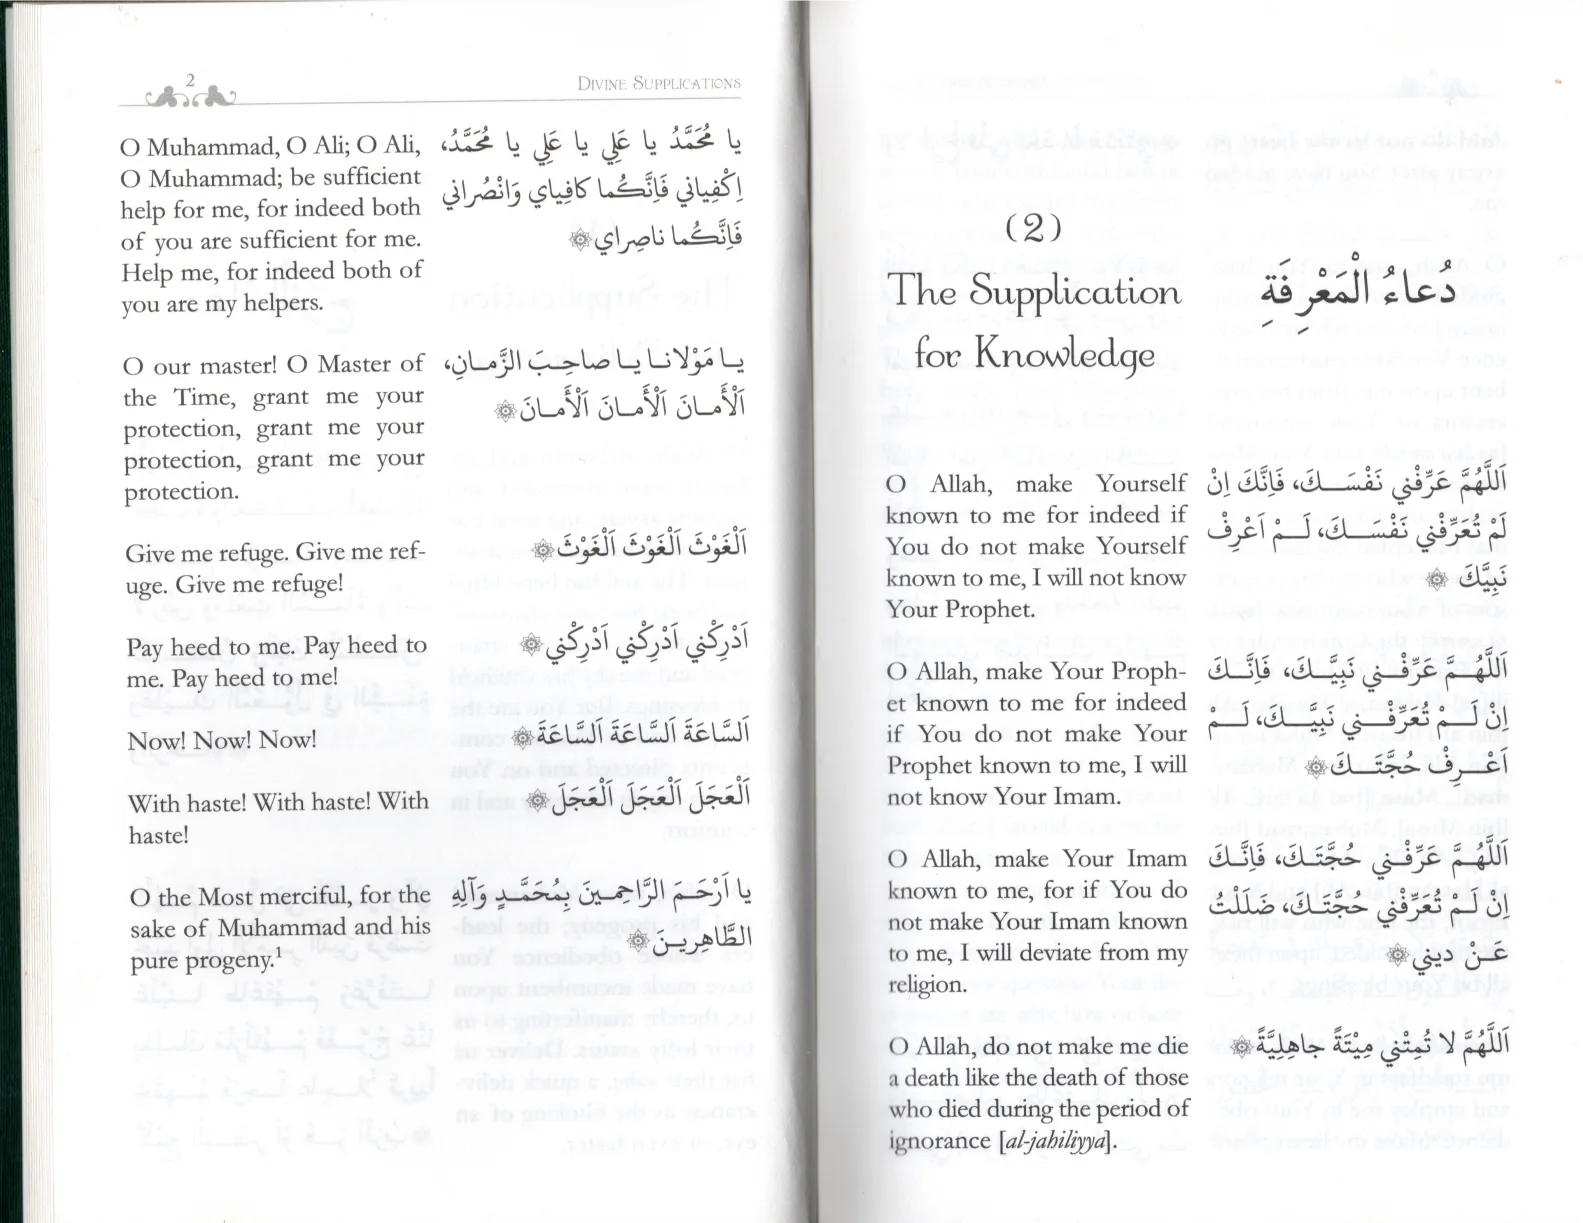 2
DIVINE SUPPLICATIONS
O Muhammad, O Ali; O Ali,
O Muhammad; be sufficient
help for me, for indeed both
of you are sufficient for me.
Help me, for indeed both of
you are my helpers.
يا مُحَمَّدُ يا عَلِي يا عَلِي يا مُحَمَّدُ،
اِكْفِياني فَاِنَّكُما كافِياي وَانْصُراني
فَاِنَّكُما ناصِراي
O our master! O Master of
the Time, grant me your
protection, grant me your
protection, grant me your
protection.
يا مَوْلانا يا صاحِبَ الزَّمانِ،
اَلْأَمانَ اَلْأَمانَ اَلْأَمانَ
Give me refuge. Give me ref-
uge. Give me refuge!
اَلْغَوْثَ اَلْغَوْثَ اَلْغَوْثَ
Pay heed to me. Pay heed to
me. Pay heed to me!
اَدْرِكْني اَدْرِكْني اَدْرِكْني
Now! Now! Now!
اَلسَّاعَةَ اَلسَّاعَةَ اَلسَّاعَةَ
With haste! With haste! With
haste!
اَلْعَجَلَ اَلْعَجَلَ اَلْعَجَلَ
O the Most merciful, for the
sake of Muhammad and his
pure progeny.¹
يا اَرْحَمَ الرَّاحِمِينَ بِمُحَمَّدٍ وَآلِهِ
الطَّاهِرِينَ
(2)
The Supplication
for Knowledge
دُعَاءُ الْمَعْرِفَةِ
O Allah, make Yourself
known to me for indeed if
You do not make Yourself
known to me, I will not know
Your Prophet.
اَللَّهُمَّ عَرِّفْني نَفْسَكَ، فَاِنَّكَ اِنْ
لَمْ تُعَرِّفْني نَفْسَكَ، لَمْ اَعْرِفْ
نَبِيَّكَ
O Allah, make Your Proph-
et known to me for indeed
if You do not make Your
Prophet known to me, I will
not know Your Imam.
اَللَّهُمَّ عَرِّفْني نَبِيَّكَ، فَاِنَّكَ
اِنْ لَمْ تُعَرِّفْني نَبِيَّكَ، لَمْ
اَعْرِفْ حُجَّتَكَ
O Allah, make Your Imam
known to me, for if You do
not make Your Imam known
to me, I will deviate from my
religion.
اَللَّهُمَّ عَرِّفْني حُجَّتَكَ، فَاِنَّكَ
اِنْ لَمْ تُعَرِّفْني حُجَّتَكَ، ضَلَلْتُ
عَنْ ديني
O Allah, do not make me die
a death like the death of those
who died during the period of
ignorance [al-jahiliyya].
اَللَّهُمَّ لا تُمِتْني مِيْتَةً جاهِلِيَّةً